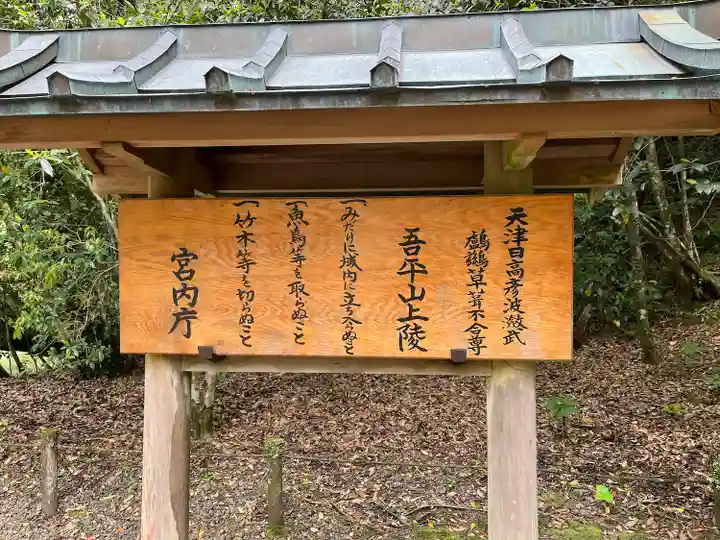 天津日高彦波瀲武
鸕鷀草葺不合尊
吾平山上陵
一みだりに域内に立ち入らぬこと
一魚鳥等を取らぬこと
一竹木等を切らぬこと
宮内庁